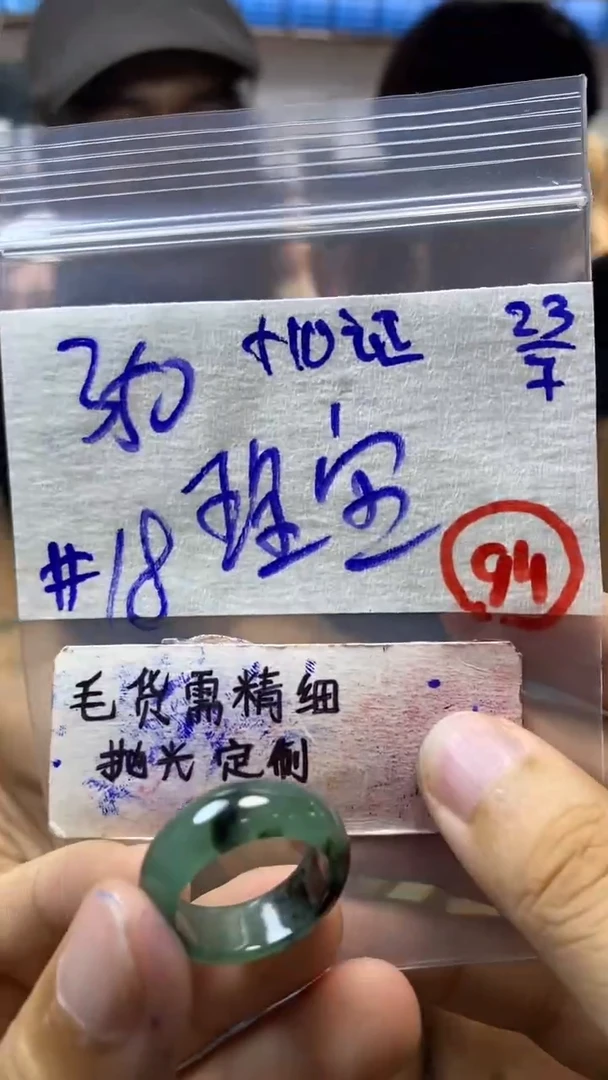 350 +10证 23/7
#18 94
毛货需精细
抛光定制